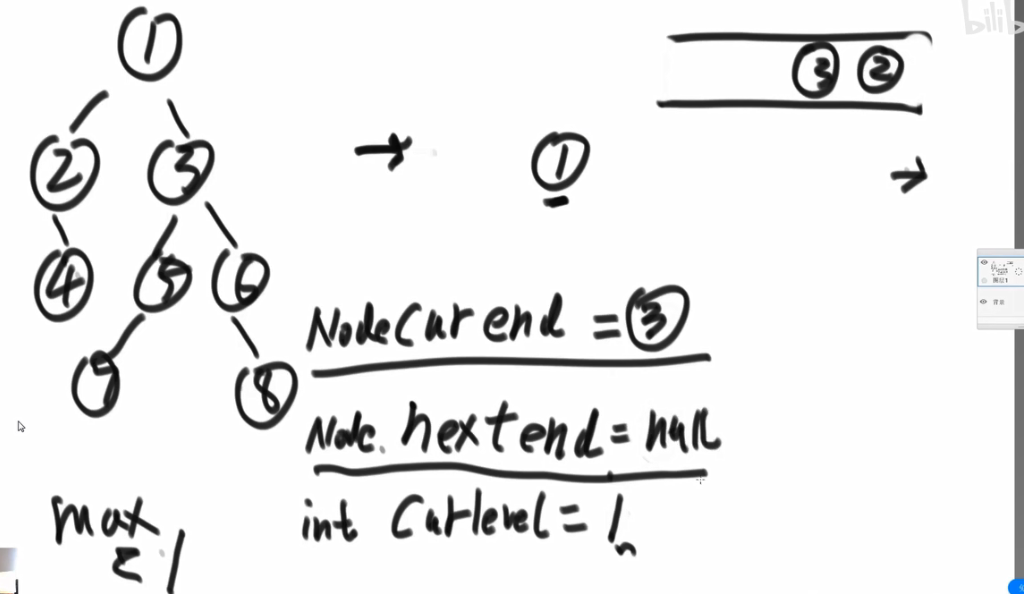 1
2 3
4 5 6
7 8
→ 1
3 2
→
Node Cur end = 3
Node. next end = null
int Curlevel = 1
max
1
bilib